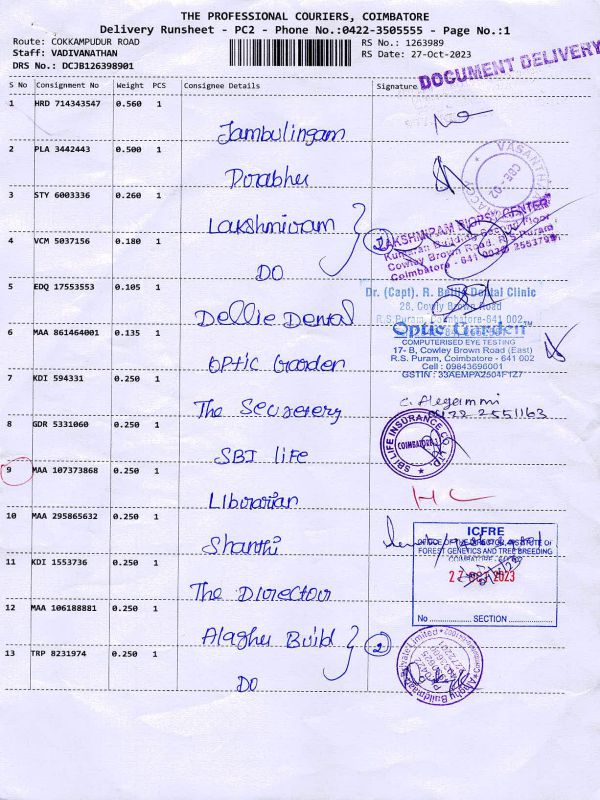 THE PROFESSIONAL COURIERS, COIMBATORE
Delivery Runsheet - PC2 - Phone No.:0422-3505555 - Page No.:1
Route: COKKAMPUDUR ROAD
RS No.: 1263989
Staff: VADIVANATHAN
RS Date: 27-Oct-2023
DRS No.: DCJB126398901
DOCUMENT DELIVERY
S No Consignment No Weight PCS Consignee Details Signature
1 HRD 714343547 0.560 1
Jambulingam
2 PLA 3442443 0.500 1
Dorabhu
VASANTHA
CBE - 02
3 STY 6003336 0.260 1
Lakshmiram
2
LAKSHMIRAM BIOPSY CENTER
Kumaran Building Second Floor,
Cowley Brown Road, R.S. Puram
Coimbatore - 641 002
4 VCM 5037156 0.180 1
DO
5 EDQ 17553553 0.105 1
Dellie Dental
Dr. (Capt). R. Dental Clinic
28, Cowly Brown Road
R.S.Puram, Coimbatore-641 002
6 MAA 861464001 0.135 1
Optic Garden
Optic Garden
COMPUTERISED EYE TESTING
17- B, Cowley Brown Road (East)
R.S. Puram, Coimbatore - 641 002
Cell : 09843696001
GSTIN : 33AEMPA2504F1Z7
7 KDI 594331 0.250 1
The Secretery
0422 2551163
8 GDR 5331060 0.250 1
SBI life
SBI LIFE INSURANCE CO. LTD.
COIMBATORE
9 MAA 107373868 0.250 1
Librarian
HC
10 MAA 295865632 0.250 1
Shanthi
ICFRE
OFFICE OF THE DIRECTOR, INSTITUTE OF
FOREST GENETICS AND TREE BREEDING
COIMBATORE
27 OCT 2023
No SECTION
11 KDI 1553736 0.250 1
The Directour
12 MAA 106188881 0.250 1
Alaghu Build
2
13 TRP 8231974 0.250 1
DO